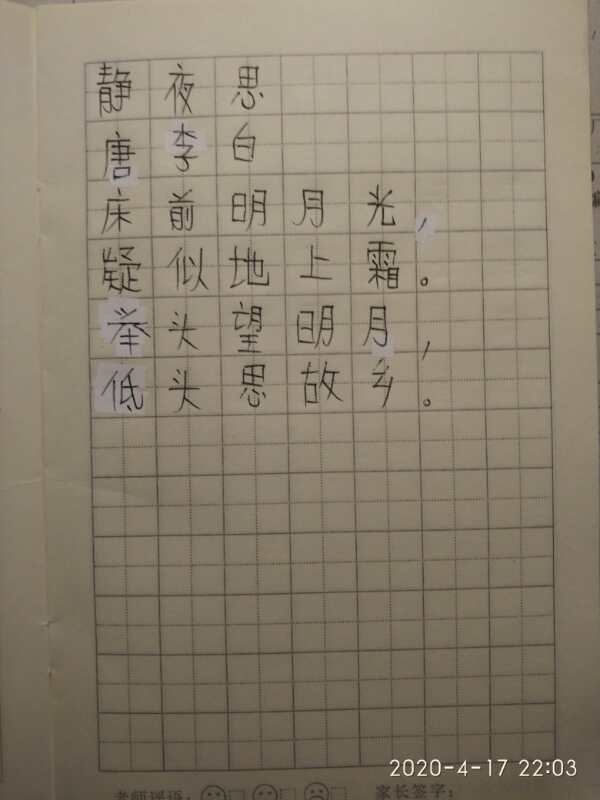 静夜思
唐李白
床前明月光，
疑似地上霜。
举头望明月，
低头思故乡。
老师评语：
家长签字：
2020-4-17 22:03